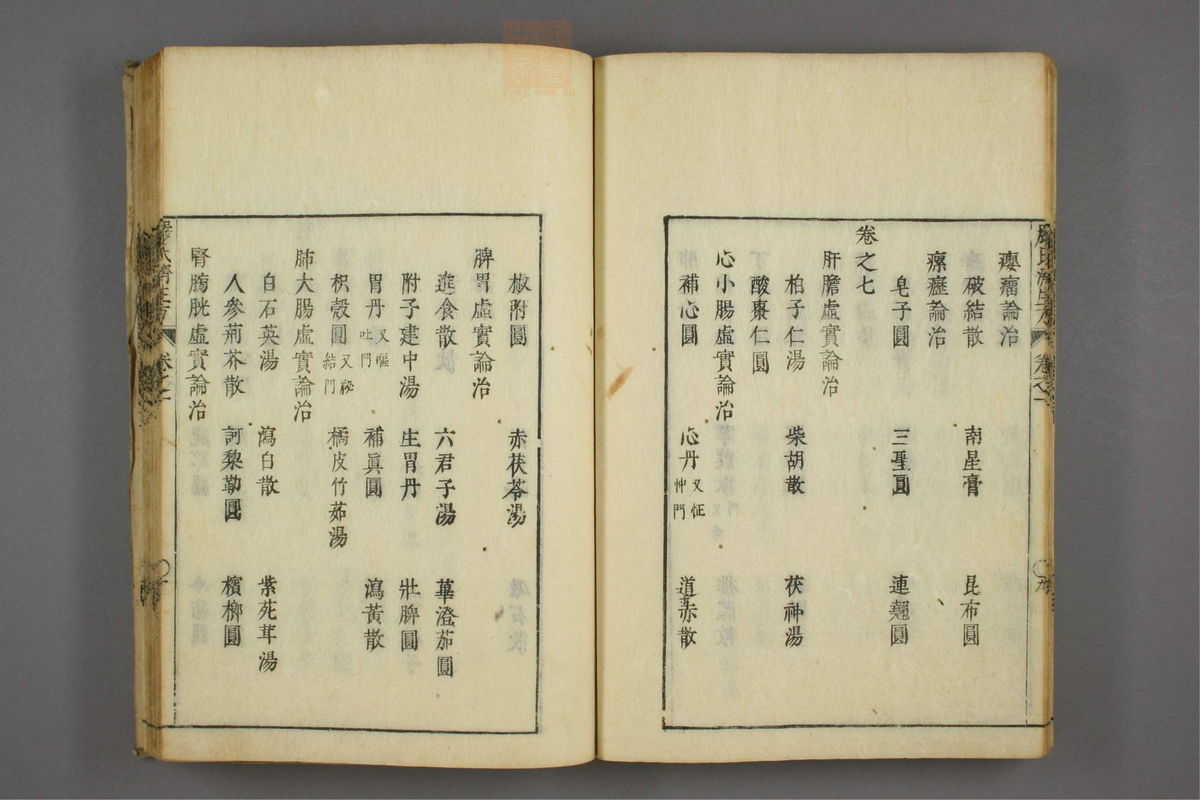 癭瘤論治
破結散　南星膏　昆布圓
瘰癧論治
皂子圓　三聖圓　連翹圓
卷之七
肝膽虛實論治
柏子仁湯　柴胡散　茯神湯
酸棗仁圓
心小腸虛實論治
補心圓　心丹又怔忡門　道赤散
椒附圓　赤茯苓湯
脾胃虛實論治
進食散　六君子湯　蓽澄茄圓
附子建中湯　生胃丹　壯脾圓
胃丹又嘔吐門　補眞圓　瀉黃散
枳殼圓又祕結門　橘皮竹茹湯
肺大腸虛實論治
白石英湯　瀉白散　紫苑茸湯
人參荊芥散　訶黎勒圓　檳榔圓
腎膀胱虛實論治